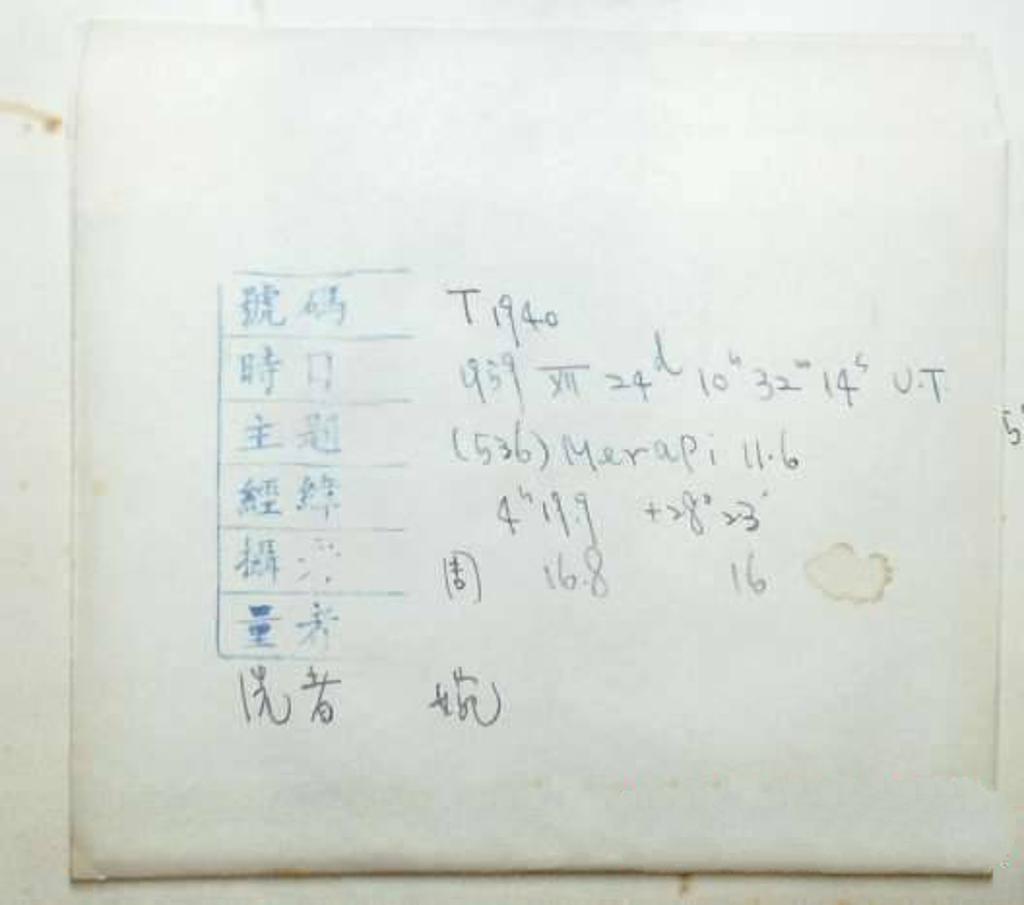 號碼 T1940
時日 1959 XII 24d 10h 32m 14s U.T.
主題 (536) Merapi 11.6
經緯 4h 19.9 +28° 23'
攝 周 16.8 16
量者
洗者 婉